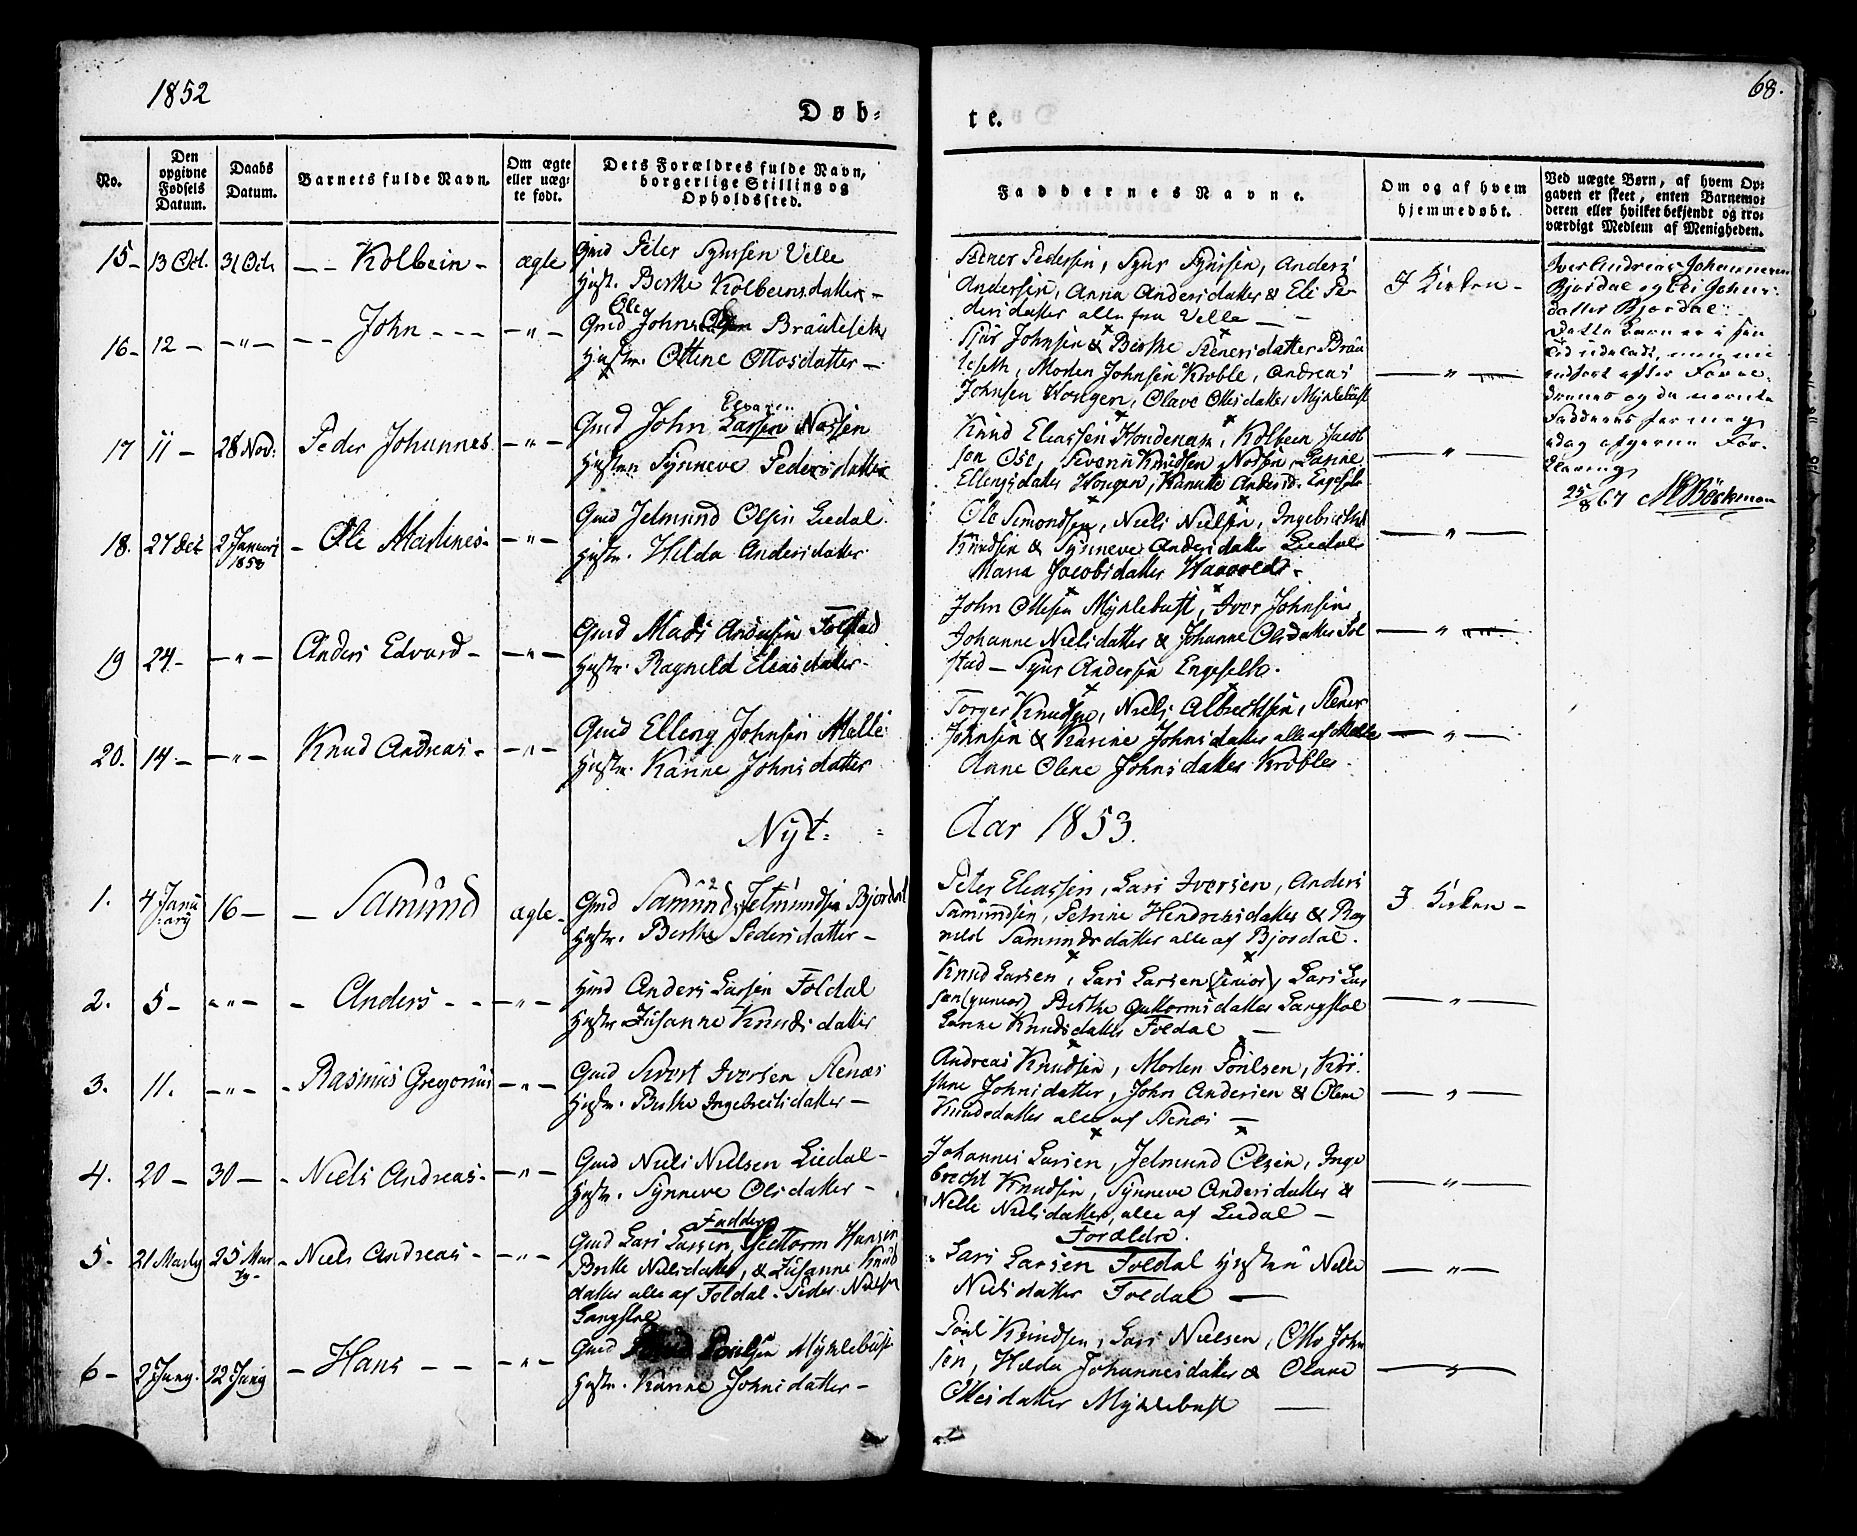 1852
68.
Døb-
te.
No.
Den
opgivne
Fødsels
Datum.
Daabs
Datum.
Barnets fulde Navn.
Om ægte
eller uæg-
te født.
Dets Forældres fulde Navn,
borgerlige Stilling og
Opholdssted.
Faddernes Navne.
Om og af hvem
hjemmedøbt.
Ved uægte Børn, af hvem Op-
gaven er skeet, enten Barnemo-
deren eller hvilket bekjendt og tro-
værdigt Medlem af Menigheden.
15- 13 Oct. 31 Oct. Kolbein - ægte
Gmd Peter Sjursen Velle
Hustr. Berthe Kolbeinsdatter -
Stener Pedersen, Sjur Sjursen, Anders
Andersen, Anna Andersdatter & Eli Pe-
dersdatter alle fra Velle
I Kirken -
16- 12 - - " - John - - - - " -
Ole
Gmd John Bräuteseth
Hustr. Ottine Ottosdatter -
Sjur Johnsen & Berthe Stenersdatter Bräu
teseth, Morten Johnsen Kroble, Andreas
Johnsen Hongen, Olave Ottesdatter Myklebust
- " -
17 11 - 28 Nov: Peder Johannes - " -
Gmd John Larsen Nossen
Hustru Synneve Pedersdatter
Knud Eliassen Hondenæs, Kolbein Jacob
sen Ose, Severin Knudsen Nossen, Hanne
Ellengsdatter Hongen, Kanutte Andersd. Engeseth
- " -
18. 27 Dec 2 Januari
1853
- Ole Martines - - " -
Gmd Jelmund Olsen Liedal
Hustr. Helda Andersdatter
Ole Simondsen, Niels Nielsen, Ingebricth
Knudsen & Synneve Andersdatter Liedal
Maria Jacobsdatter
- " -
19 24- - " - Anders Edvard - - " -
Gmd Mads Andersen Folstad
Hustr. Ragnild Eliasdatter -
John Ottesen Myklebust, Iver Johnsen,
Johanne Nielsdatter & Johanne Olsdatter Fol
stad - Sjur Andersen Engeseth.
- " -
20. 14- - " - Knud Andreas - - " -
Gmd Elleng Johnsen Melle
Hustr. Karine Johnsdatter
Torger Knudsen, Niels Albrechtsen, Stener
Johnsen & Karine Johnsdatter alle af Melle
Anne Olene Johnsdatter Kroble -
- " -
Iver Andreas Johannesen
Bjordal og Eli Johns-
datter Bjordal.
Dette Barn er i sin
Tid udeladt, men nu
indført efter Foræl-
drenes og de nævnte
Fadderes for mig
idag afgivne For-
klaring
25/8 67 Böckman
Nyt-
Aar 1853.
1. 4 Janu
ary
16 - - Samund ægte -
Gmd Samund Jetmundsen Bjordal
Hustr. Berthe Pedersdatter -
Peter Eliassen, Lars Iversen, Anders
Samundsen, Petrine Hendriksdatter & Rag
nild Samundsdatter alle af Bjordal.
I Kirken -
2. 5 - - " - - Anders - - - " -
Hmd Anders Larsen Foldal
Hustr. Susanne Knudsdatter
Knud Larsen, Lars Larsen (senior), Lars Lar
sen (junior) Berthe Guttormsdatter Langstol
Hanne Knudsdatter Foldal -
- " -
3. 11. - " - - Rasmus Gregorius - " -
Gmd Sivert Iversen Stenæs
Hustr. Berthe Ingebretsdatter -
Andreas Knudsen, Morten Poulsen, Kir-
stine Johnsdatter, John Andersen & Olene
Knudsdatter alle af Stenæs -
- " -
4. 20 - 30 - - Niels Andreas - - " -
Gmd Niels Nielsen Liedal -
Hustr. Synneve Olsdatter -
Johannes Larsen, Jelmund Olsen, Inge
brecht Knudsen, Synneve Andersdatter &
Nelle Nielsdatter, alle af Liedal -
- " -
5. 21 Marty 25 Mar
ty -
- Niels Andreas - - " -
Faddere
Gmd Lars Larsen, Guttorm Hansen
Berthe Nielsdatter, & Susanne Knuds
datter alle af Foldal. Peder Nielsen
Langstol
Forældre.
Lars Larsen Foldal Hustru Nelle
Nielsdatter Foldal -
- " -
6 - 2 Juny. 12 Juny - Hans - - - " -
Gmd Poulsen Myklebust
Hustr. Karine Johnsdatter -
Poul Knudsen, Lars Nielsen, Otto John
sen, Helda Johannesdatter & Olave
Ottesdatter Myklebust -
- " -